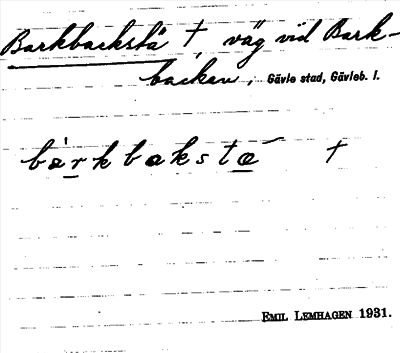 Barkbackstå †, väg vid Bark-
backen, Gävle stad, Gävleb. l.
bàrkbakstǽ †
EMIL LEMHAGEN 1931.